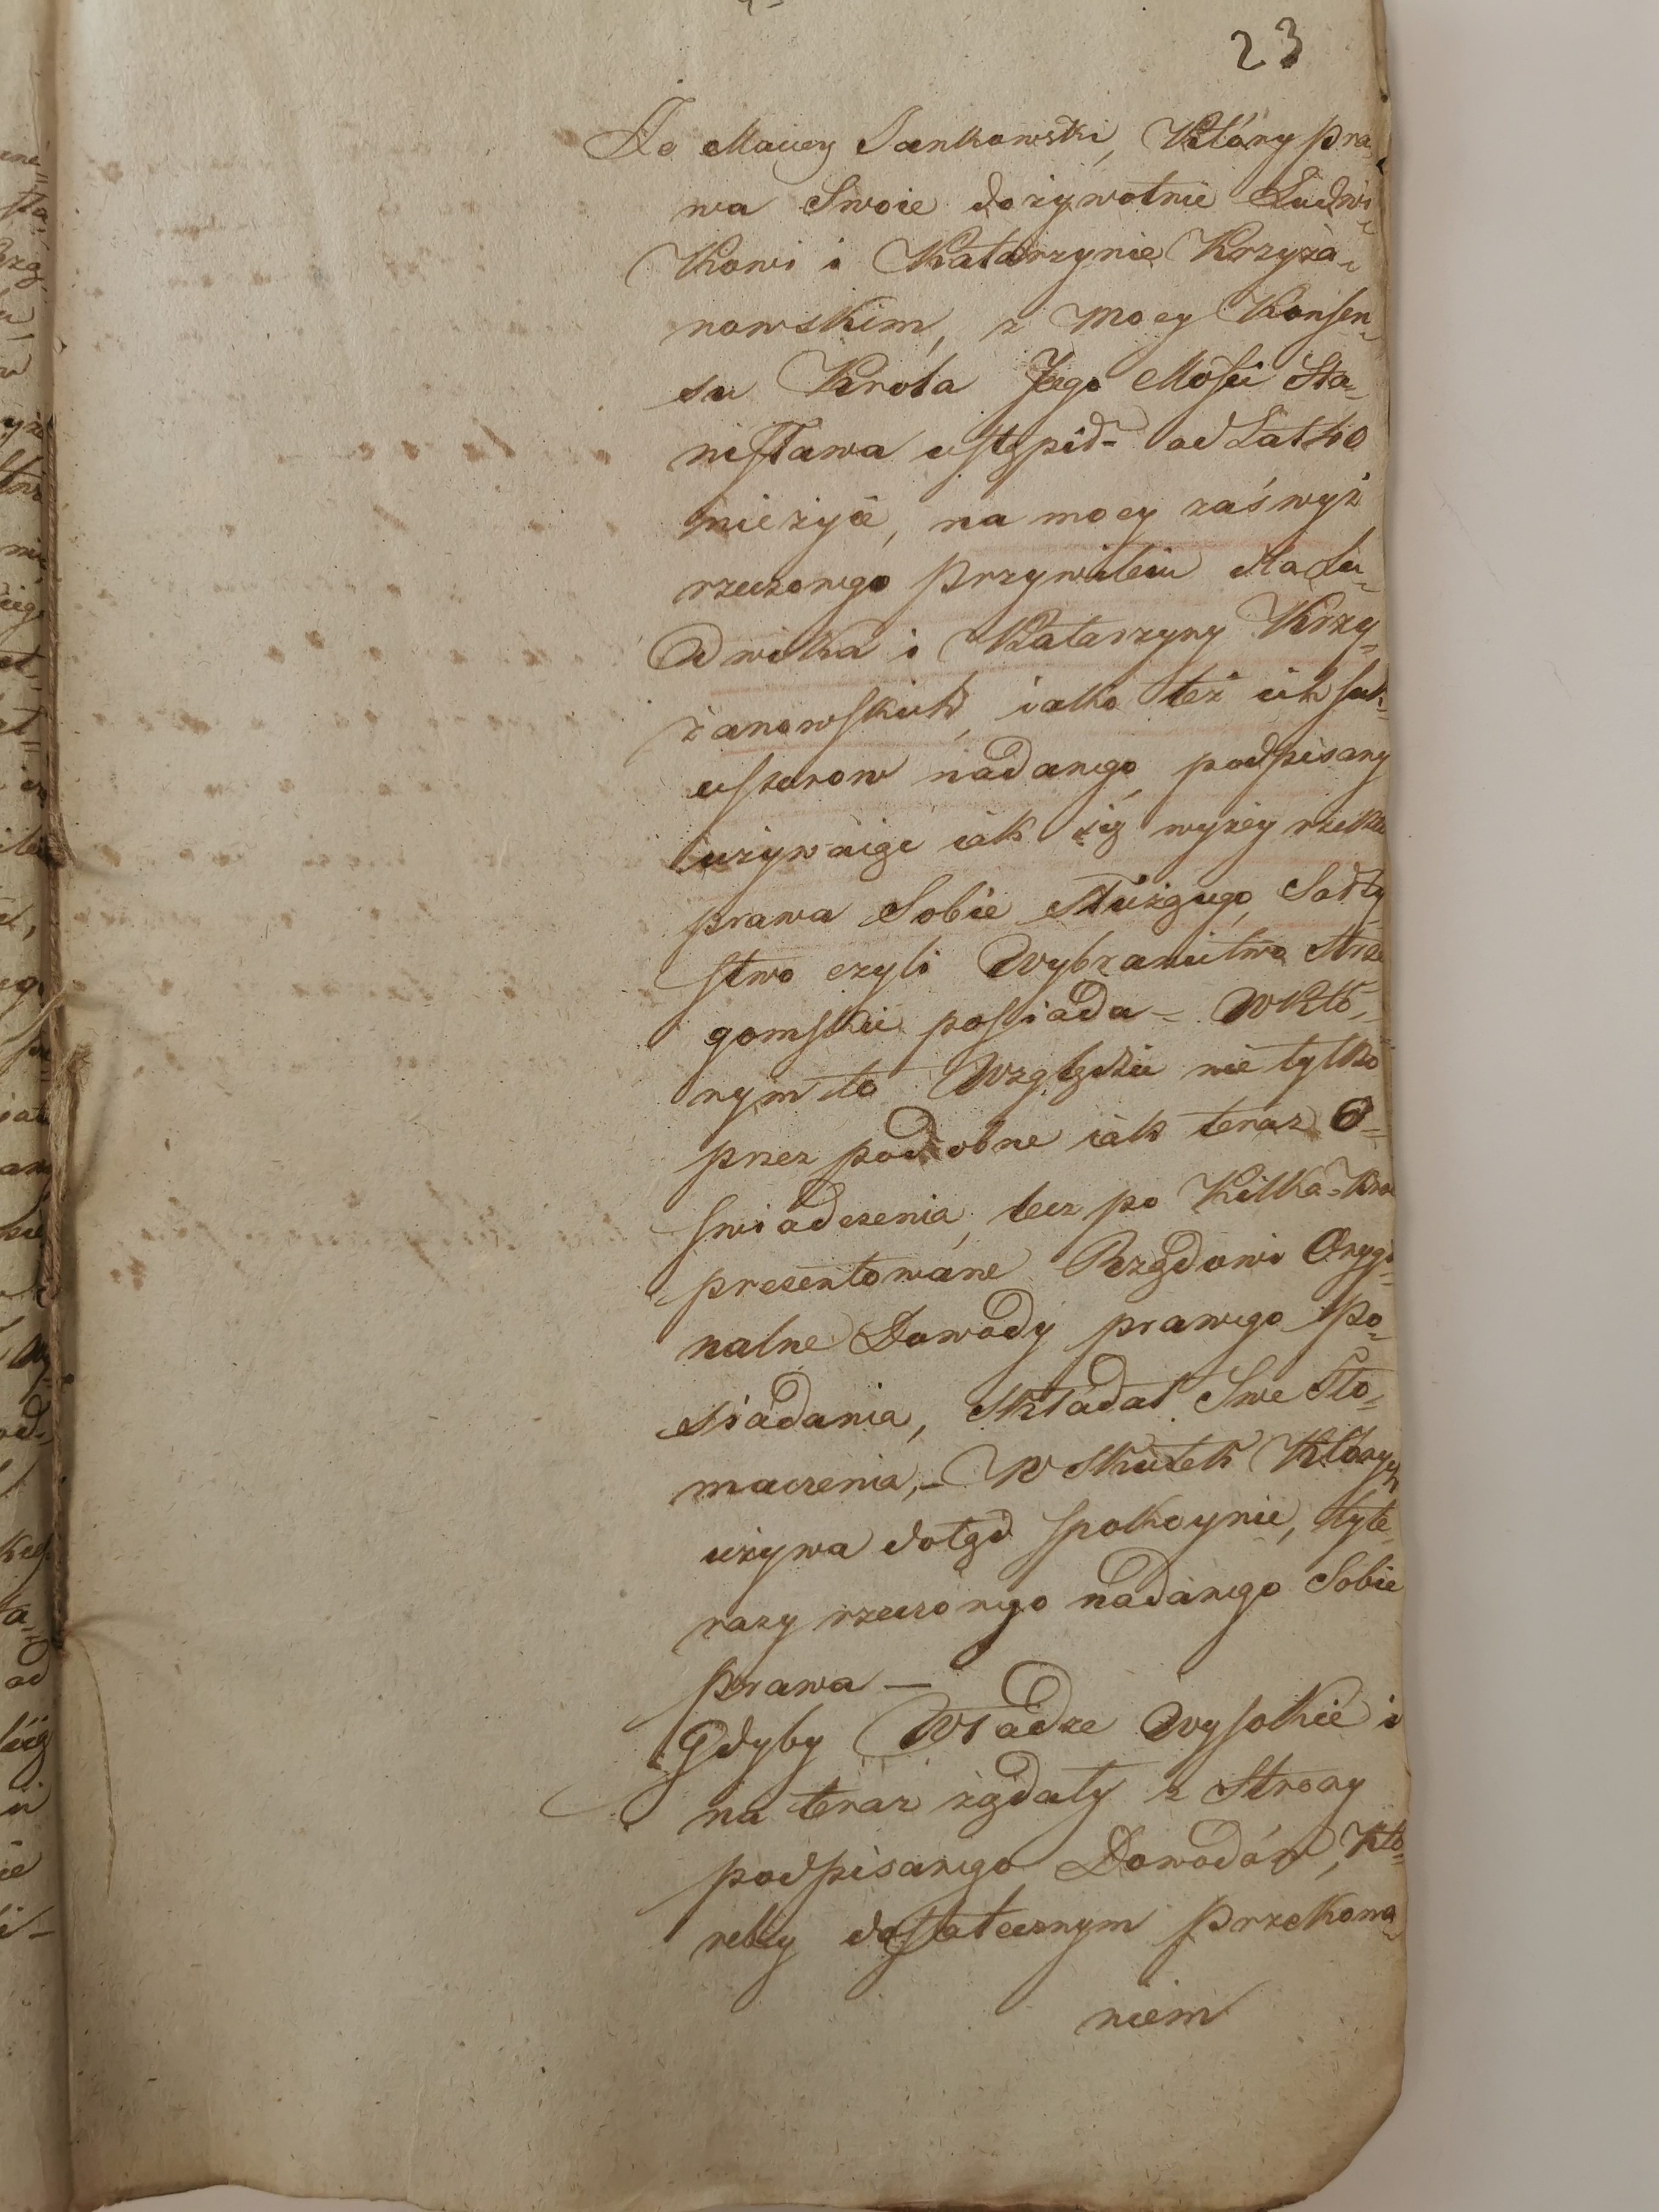 23
Że Maciey Jankowski, Który pra-
wa Swoie dożywotnie Ludwi-
Kowi i Katarzynie Krzyża-
nowskim, z mocy Konsen-
su Króla Jego Mości Sta-
nisława ustąpił - od Lat 40
nieżyie, na mocy zaś wyż
rzeczonego przywileiu dla Lu-
dwika i Katarzyny Krzy-
żanowskich, iako też ich suk-
cessorow nadanego podpisany
używaiąc iak się wyżey rzekło
prawa Sobie Służącego, Sołty
stwo czyli Wybraniectwo Strze
gomskie possiada - w Któ-
rym to Względzie nie tylko
przez podobne iak teraz O-
swiadczenia, lecz po Kilka-Kro
presentowane Rządowi Orygi-
nalne Dowody prawego Po-
siadania, Składał Swe Tło-
maczenia, - W Skutek Których
używa dotąd spokoynie, tyle
razy rzeczonego nadanego Sobie
prawa —
Gdyby Władze Wysokie i
na teraz żądały z Strony
podpisanego Dowodów, Któ-
reby dostatecznym przekona-
niem